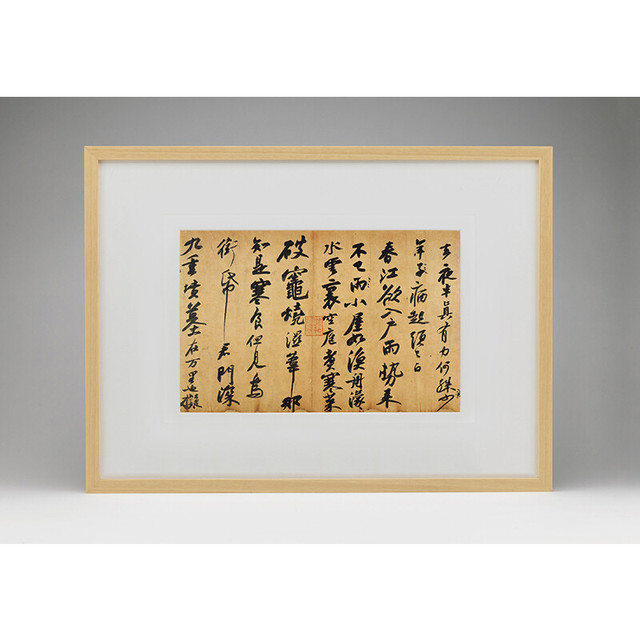 去夜半真有力何殊少
年子病起頭已白
春江欲入戶雨勢來
不已雨小屋如漁舟濛
水雲裏空庖煮寒菜
破竈燒濕葦那
知是寒食但見烏
銜帋君門深
九重墳墓在万里也擬